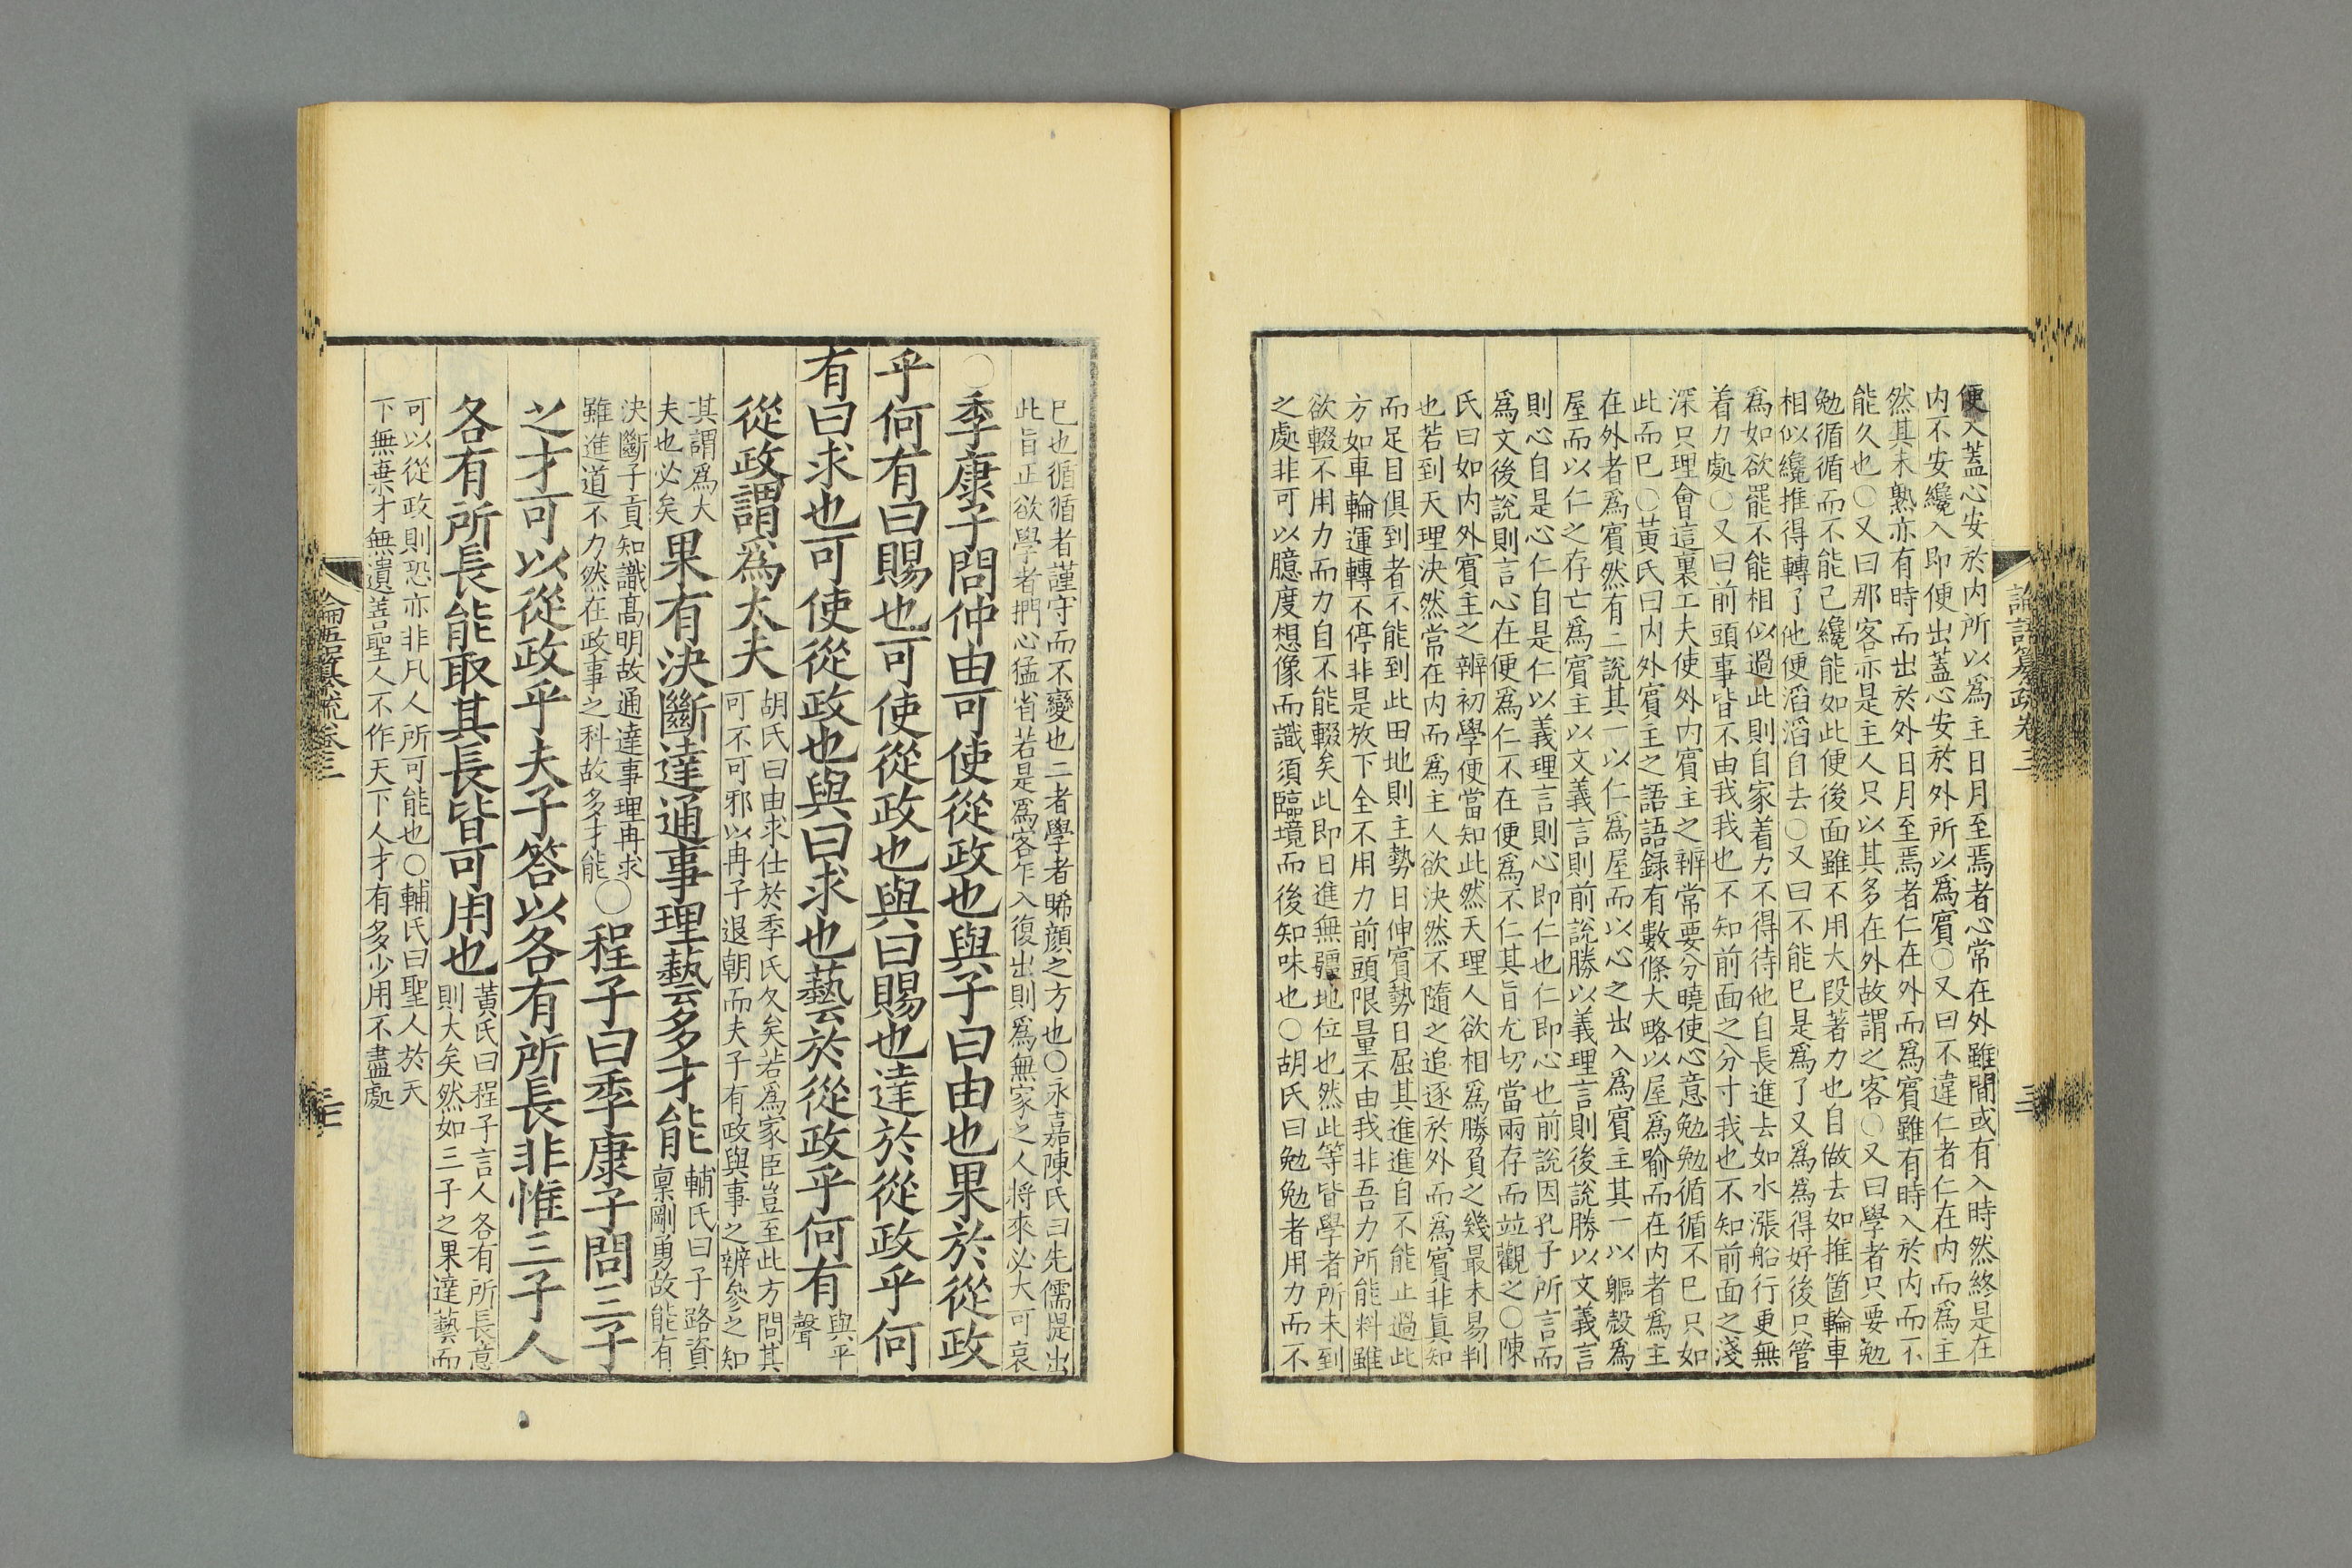 便入蓋心安於内所以爲主日月至焉者心常在外雖間或有入時然終是在
内不安纔入即便出蓋心安於外所以爲賓○又曰不違仁者仁在内而爲主
然其未熟亦有時而出於外日月至焉者仁在外而爲賓雖有時入於内而不
能久也○又曰那客亦是主人只以其多在外故謂之客○又曰學者只要勉
勉循循而不能已纔能如此便後面雖不用大段著力也自做去如推箇輪車
相似纔推得轉了他便滔滔自去○又曰不能已是爲了又爲爲得好後只管
爲如欲罷不能相似過此則自家着力不得待他自長進去如水漲船行更無
着力處○又曰前頭事皆不由我我也不知前面之分寸我也不知前面之淺
深只理會這裏工夫使外内賓主之辨常要分曉使心意勉勉循循不已只如
此而已○黃氏曰内外賓主之語語錄有數條大略以屋爲喻而在内者爲主
在外者爲賓然有二說其一以仁爲屋而以心之出入爲賓主其一以軀殼爲
屋而以仁之存亡爲賓主以文義言則前說勝以義理言則後說勝以文義言
則心自是心仁自是仁以義理言則心即仁也仁即心也前說因孔子所言而
爲文後說則言心在便爲仁不在便爲不仁其旨尤切當兩存而並觀之○陳
氏曰如内外賓主之辨初學便當知此然天理人欲相爲勝負之幾最未易判
也若到天理決然常在内而爲主人欲決然不隨之追逐於外而爲賓非眞知
而足目俱到者不能到此田地則主勢日伸賓勢日屈其進進自不能止過此
方如車輪運轉不停非是放下全不用力前頭限量不由我非吾力所能料雖
欲輟不用力而力自不能輟矣此即日進無疆地位也然此等皆學者所未到
之處非可以臆度想像而識須臨境而後知味也○胡氏曰勉勉者用力而不
論語纂疏卷三
已也循循者謹守而不變也二者學者晞顔之方也○永嘉陳氏曰先儒提出
此旨正欲學者捫心猛省若是爲客乍入復出則爲無家之人將來必大可哀
○季康子問仲由可使從政也與子曰由也果於從政
乎何有曰賜也可使從政也與曰賜也達於從政乎何
有曰求也可使從政也與曰求也藝於從政乎何有與平
聲
從政謂爲大夫胡氏曰由求仕於季氏久矣若爲家臣豈至此方問其
可不可邪以冉子退朝而夫子有政與事之辨參之知
其謂爲大
夫也必矣果有決斷達通事理藝多才能輔氏曰子路資
稟剛勇故能有
決斷子貢知識髙明故通達事理冉求
雖進道不力然在政事之科故多才能○程子曰季康子問三子
之才可以從政乎夫子答以各有所長非惟三子人
各有所長能取其長皆可用也黃氏曰程子言人各有所長意
則大矣然如三子之果達藝而
可以從政則恐亦非凡人所可能也○輔氏曰聖人於天
下無棄才無遺善聖人不作天下人才有多少用不盡處
論語纂疏卷三